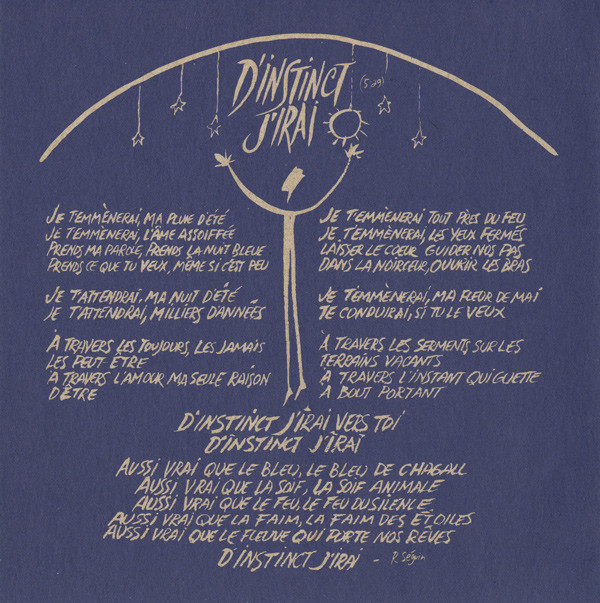 D'INSTINCT (5:29)
J'IRAI
JE T'EMMÈNERAI, MA PLUIE D'ÉTÉ
JE T'EMMÈNERAI, L'ÂME ASSOIFFÉE
PRENDS MA PAROLE, PRENDS LA NUIT BLEUE
PRENDS CE QUE TU VEUX, MÊME SI C'EST PEU
JE T'ATTENDRAI, MA NUIT D'ÉTÉ
JE T'ATTENDRAI, MILLIERS D'ANNÉES
À TRAVERS LES TOUJOURS, LES JAMAIS
LES PEUT ÊTRE
À TRAVERS L'AMOUR MA SEULE RAISON
D'ÊTRE
JE T'EMMÈNERAI TOUT PRÈS DU FEU
JE T'EMMÈNERAI, LES YEUX FERMÉS
LAISSER LE COEUR GUIDER NOS PAS
DANS LA NOIRCEUR, OUVRIR LES BRAS
JE T'EMMÈNERAI, MA FLEUR DE MAI
TE CONDUIRAI, SI TU LE VEUX
À TRAVERS LES SERMENTS SUR LES
TERRAINS VACANTS
À TRAVERS L'INSTANT QUI GUETTE
À BOUT PORTANT
D'INSTINCT J'IRAI VERS TOI
D'INSTINCT J'IRAI
AUSSI VRAI QUE LE BLEU, LE BLEU DE CHAGALL
AUSSI VRAI QUE LA SOIF, LA SOIF ANIMALE
AUSSI VRAI QUE LE FEU, LE FEU DU SILENCE
AUSSI VRAI QUE LA FAIM, LA FAIM DES ÉTOILES
AUSSI VRAI QUE LE FLEUVE QUI PORTE NOS RÊVES
D'INSTINCT J'IRAI - R. Séguin